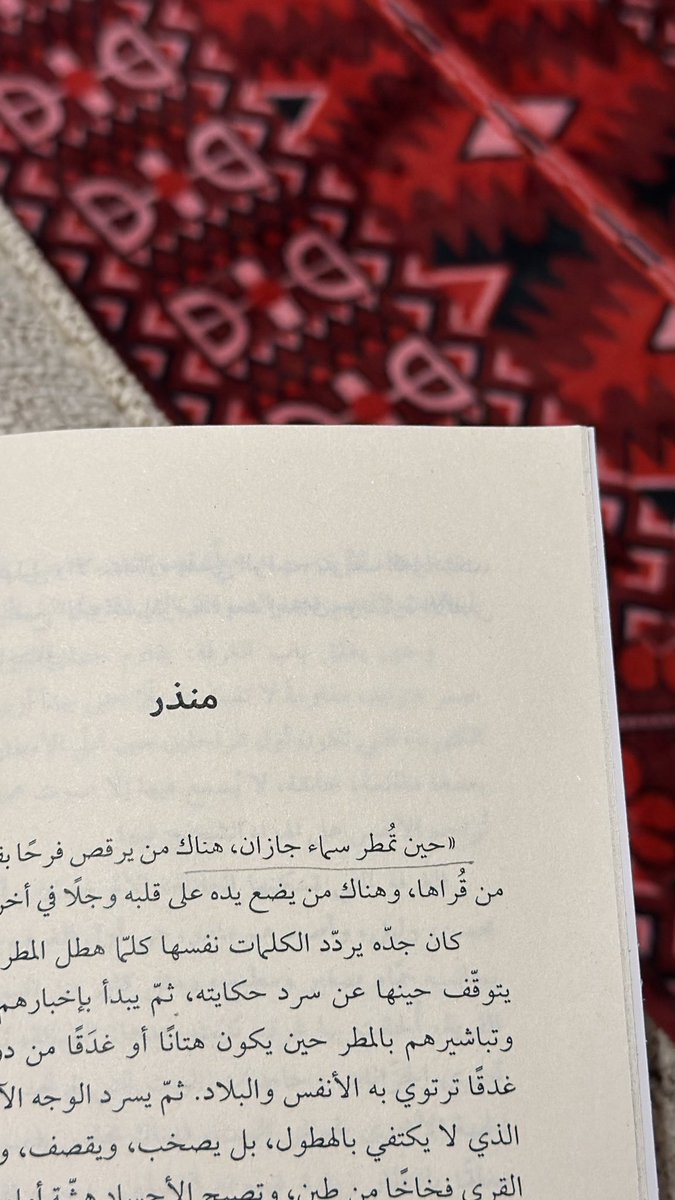 منذر
«حين تمُطر سماء جازان، هناك من يرقص فرحًا
من قُراها، وهناك من يضع يده على قلبه وجلًا في
كان جدّه يردّد الكلمات نفسها كلمّا هطل المطر
يتوقّف حينها عن سرد حكايته، ثمّ يبدأ بإخبارهم
وتباشيرهم بالمطر حين يكون هتانًا أو غدَقًا من
غدقًا ترتوي به الأنفس والبلاد. ثمّ يسرد الوجه
الذي لا يكتفي بالهطول، بل يصخب، ويقصف،
القرى فخاخًا من طين، وتصبح الأجساد هشّة